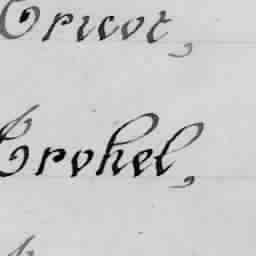 Tricot,
Trohel,